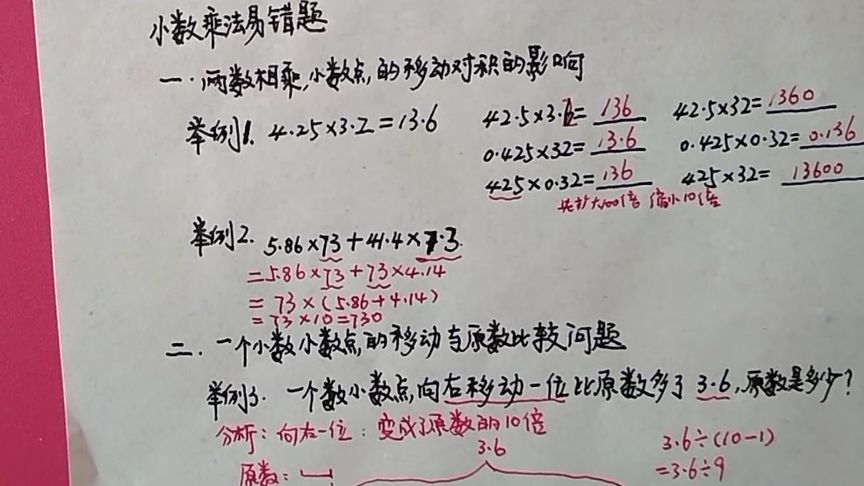 小数乘法易错题
一.两数相乘,小数点,的移动对积的影响
举例1. 4.25×3.2=13.6 42.5×3.2=136 42.5×32=1360
0.425×32=13.6 0.425×0.32=0.136
425×0.32=136 425×32=13600
扩大100倍 缩小10倍
举例2. 5.86×73+41.4×7.3
=5.86×73+73×4.14
=73×(5.86+4.14)
=73×10=730
二.一个小数小数点,的移动与原数比较问题
举例3. 一个数小数点,向右移动一位比原数多了3.6,原数是多少?
分析:向右一位:变成了原数的10倍 3.6÷(10-1)
3.6 =3.6÷9
原数: